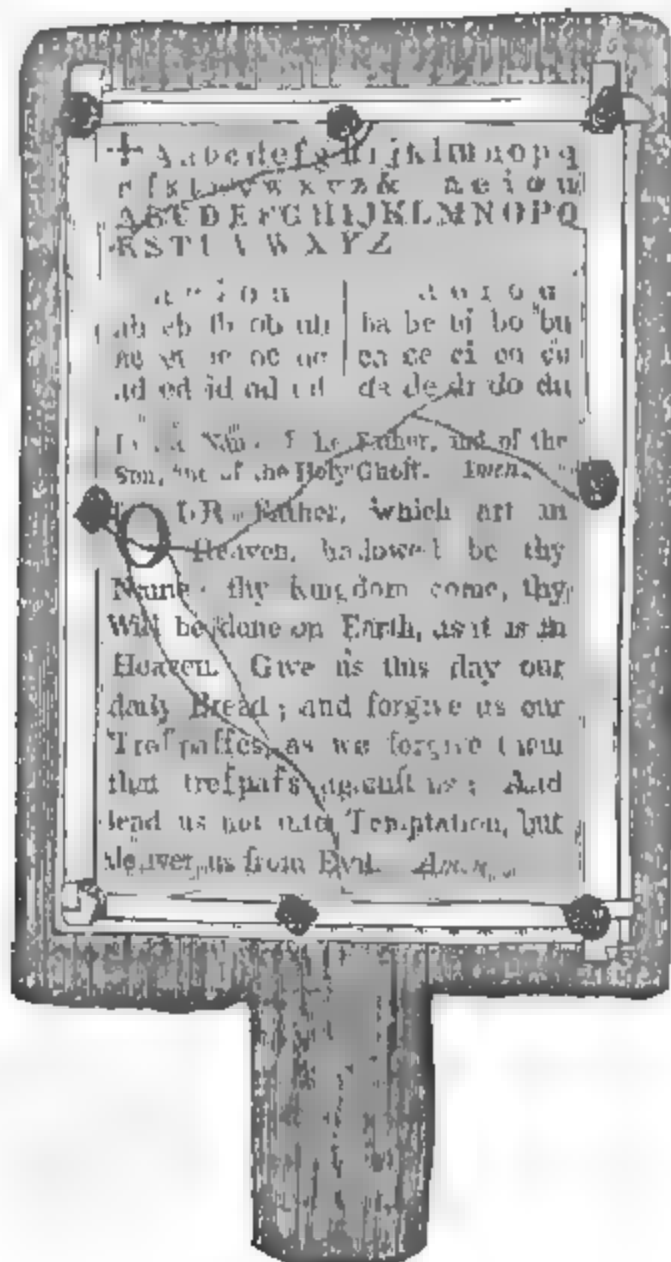 + A a b c d e f g h i j k l m n o p q
r ſ s t u v w x y z & a e i o u
A B C D E F G H I J K L M N O P Q
R S T U V W X Y Z
a e i o u | a e i o u
ab eb ib ob ub | ba be bi bo bu
ac ec ic oc uc | ca ce ci co cu
ad ed id od ud | da de di do du
Name Father, and of the
Son, of the Holy Ghoſt. Amen.
OUR Father, which art in
Heaven, hallowed be thy
Name; thy kingdom come, thy
Will be done on Earth, as it is in
Heaven. Give us this day our
daily Bread; and forgive us our
Treſpaſſes, as we forgive them
that treſpaſs againſt us: And
lead us not into Temptation, but
deliver us from Evil. Amen.